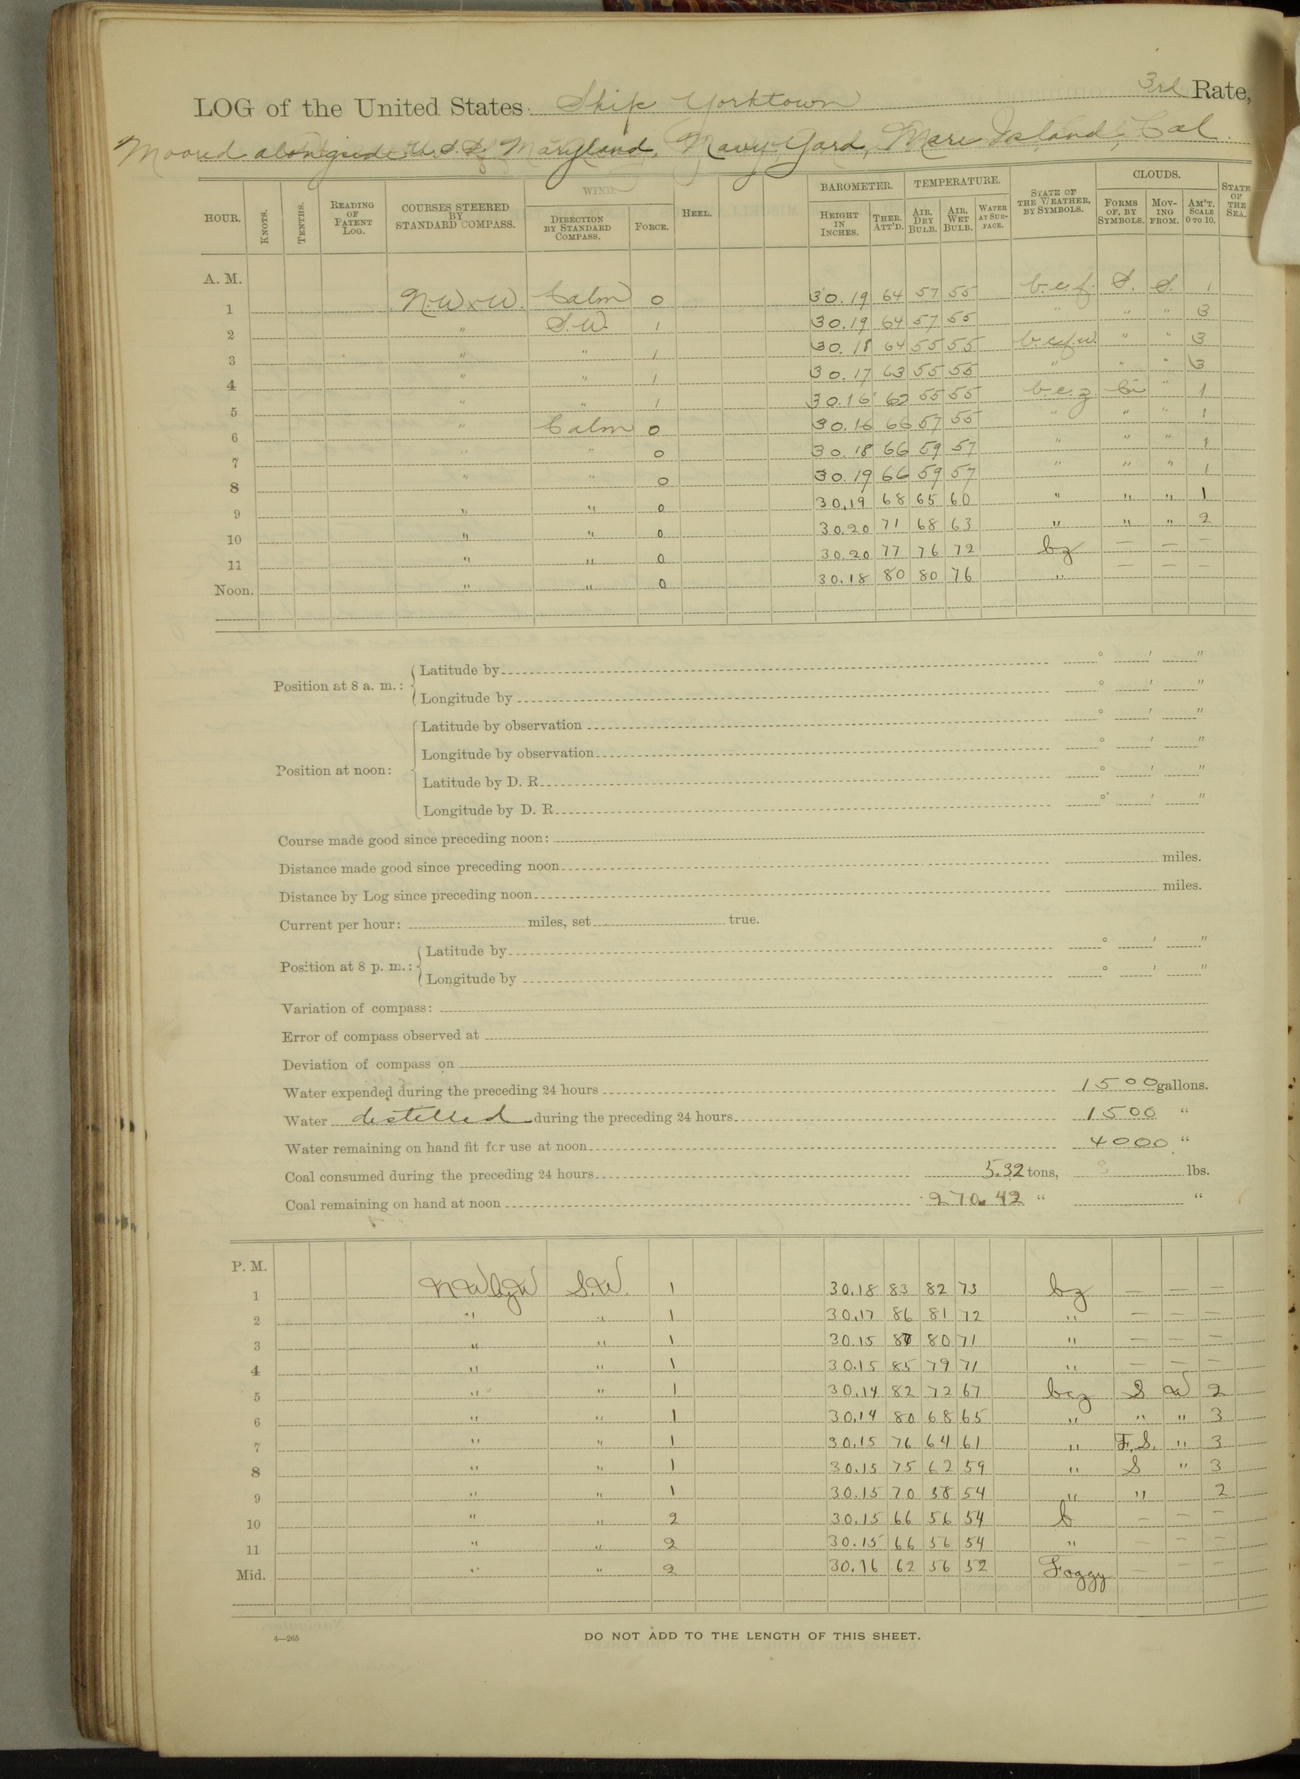 LOG of the United States Ship Yorktown 3rd Rate,
Moored alongside U.S.S. Maryland, Navy Yard, Mare Island, Cal.
HOUR. KNOTS. TENTHS. READING OF PATENT LOG. COURSES STEERED BY STANDARD COMPASS. WIND. DIRECTION BY STANDARD COMPASS. FORCE. HEEL. BAROMETER. HEIGHT IN INCHES. THER. ATT'D. TEMPERATURE. AIR, DRY BULB. AIR, WET BULB. WATER AT SURFACE. STATE OF THE WEATHER, BY SYMBOLS. CLOUDS. FORMS OF, BY SYMBOLS. MOVING FROM. AM'T. SCALE 0 TO 10. STATE OF THE SEA.
A. M.
1 N.W.xW. Calm 0 30.19 64 57 55 b.c.f. S. S. 1
2 " S.W. 1 30.19 64 57 55 " " " 3
3 " " 1 30.18 64 55 55 b.c.f.w. " " 3
4 " " 1 30.17 63 55 55 " " " 3
5 " " 1 30.16 62 55 55 b.c.z. Ci " 1
6 " Calm 0 30.16 66 57 55 " " " 1
7 " " 0 30.18 66 59 57 " " " 1
8 " " 0 30.19 66 59 57 " " " 1
9 " " 0 30.19 68 65 60 " " " 1
10 " " 0 30.20 71 68 63 " " " 2
11 " " 0 30.20 77 76 72 bz — — —
Noon. " " 0 30.18 80 80 76 " — — —
Position at 8 a. m.: Latitude by ° ' "
Longitude by ° ' "
Position at noon: Latitude by observation ° ' "
Longitude by observation ° ' "
Latitude by D. R. ° ' "
Longitude by D. R. ° ' "
Course made good since preceding noon:
Distance made good since preceding noon miles.
Distance by Log since preceding noon miles.
Current per hour: miles, set true.
Position at 8 p. m.: Latitude by ° ' "
Longitude by ° ' "
Variation of compass:
Error of compass observed at
Deviation of compass on
Water expended during the preceding 24 hours 1500 gallons.
Water distilled during the preceding 24 hours 1500 "
Water remaining on hand fit for use at noon 4000 "
Coal consumed during the preceding 24 hours 5.32 tons, lbs.
Coal remaining on hand at noon 270.42 " "
P. M.
1 NWbyW S.W. 1 30.18 83 82 73 bz — — —
2 " " 1 30.17 86 81 72 " — — —
3 " " 1 30.15 87 80 71 " — — —
4 " " 1 30.15 85 79 71 " — — —
5 " " 1 30.14 82 72 67 bcz S W 2
6 " " 1 30.14 80 68 65 " " " 3
7 " " 1 30.15 76 64 61 " F.S. " 3
8 " " 1 30.15 75 62 59 " S " 3
9 " " 1 30.15 70 58 54 " " 2
10 " " 2 30.15 66 56 54 b — — —
11 " " 2 30.15 66 56 54 " — — —
Mid. " " 2 30.16 62 56 52 Foggy — — —
4—265
DO NOT ADD TO THE LENGTH OF THIS SHEET.